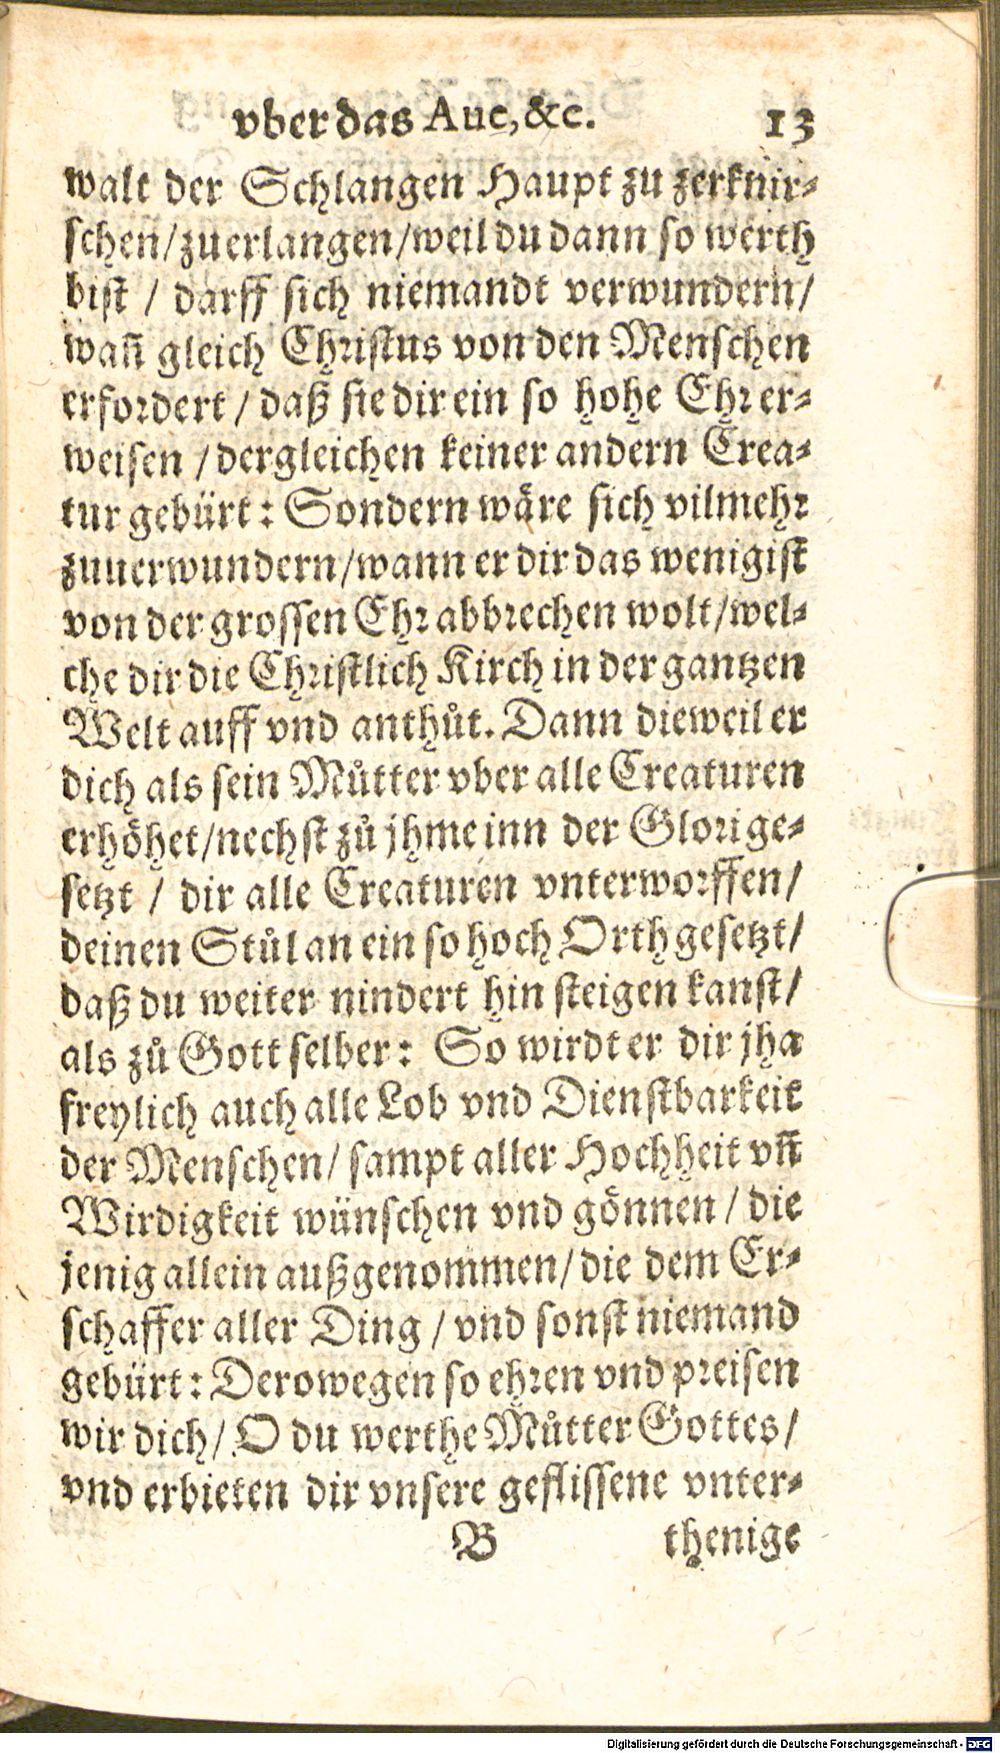 vber das Aue, &c. 13
walt der Schlangen Haupt zu zerknir⸗
schen/zuerlangen/weil du dann so werth
bist / darff sich niemandt verwundern/
wañ gleich Christus von den Menschen
erfordert / daß sie dir ein so hohe Ehr er⸗
weisen / dergleichen keiner andern Crea⸗
tur gebürt: Sondern wåre sich vilmehr
zuuerwundern/wann er dir das wenigist
von der grossen Ehr abbrechen wolt/wel⸗
che dir die Christlich Kirch in der gantzen
Welt auff vnd anthůt. Dann dieweil er
dich als sein Můtter vber alle Creaturen
erhöhet/nechst zů jhme inn der Glori ge⸗
setzt / dir alle Creaturen vnterworffen/
deinen Stůl an ein so hoch Orth gesetzt/
daß du weiter nindert hin steigen kanst/
als zů Gott selber: So wirdt er dir jha
freylich auch alle Lob vnd Dienstbarkeit
der Menschen/ sampt aller Hochheit vñ
Wirdigkeit wünschen vnd gönnen / die
jenig allein außgenommen/die dem Er⸗
schaffer aller Ding / vnd sonst niemand
gebürt: Derowegen so ehren vnd preisen
wir dich/ O du werthe Můtter Gottes/
vnd erbieten dir vnsere geflissene vnter⸗
B thenige
Digitalisierung gefördert durch die Deutsche Forschungsgemeinschaft - DFG